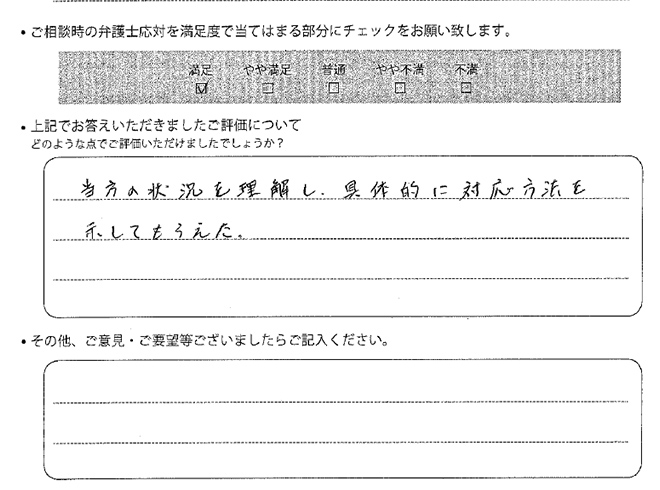 ・ご相談時の弁護士応対を満足度で当てはまる部分にチェックをお願い致します。
満足 やや満足 普通 やや不満 不満
☑ □ □ □ □
・上記でお答えいただきましたご評価について
どのような点でご評価いただけましたでしょうか？
当方の状況を理解し、具体的に対応方法を
示してもらえた。
・その他、ご意見・ご要望等ございましたらご記入ください。